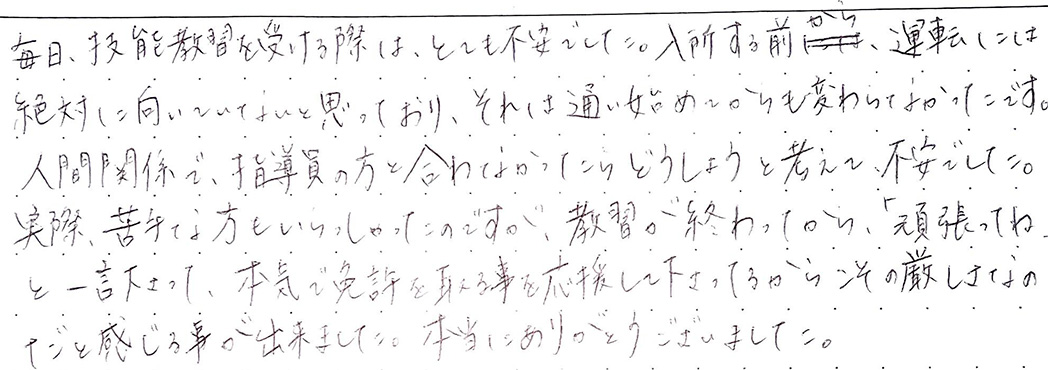 毎日、技能教習を受ける際は、とても不安でした。入所する前から、運転には
絶対に向いていないと思っており、それは通い始めてからも変わらなかったです。
人間関係で、指導員の方と合わなかったらどうしようと考えて、不安でした。
実際、苦手な方もいらっしゃったのですが、教習が終わってから、「頑張ってね」
と一言下さって、本気で免許を取る事を応援して下さってるからこその厳しさなの
だと感じる事が出来ました。本当にありがとうございました。